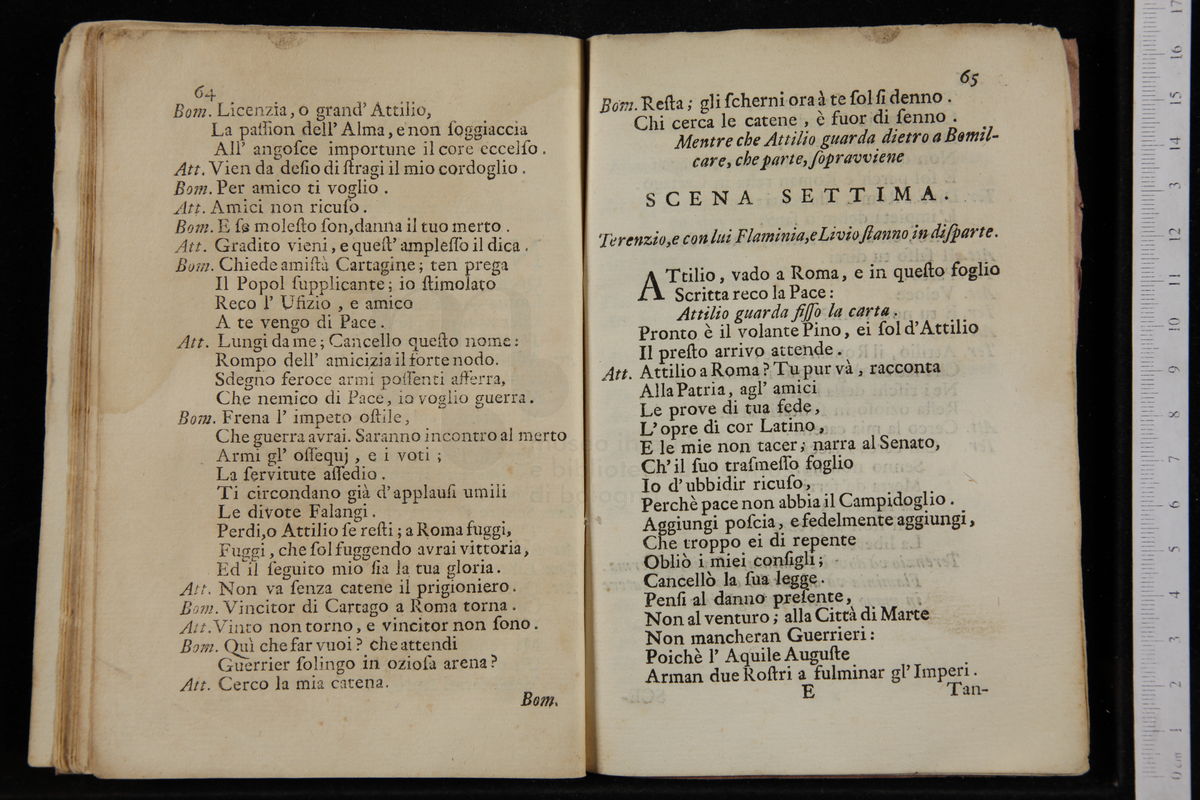 64
Bom. Licenzia, o grand' Attilio,
La paſſion dell' Alma, e non ſoggiaccia
All' angoſce importune il core eccelſo.
Att. Vien da deſio di ſtragi il mio cordoglio.
Bom. Per amico ti voglio.
Att. Amici non ricuſo.
Bom. E ſe moleſto ſon, danna il tuo merto.
Att. Gradito vieni, e queſt' ampleſſo il dica.
Bom. Chiede amiſtà Cartagine; ten prega
Il Popol ſupplicante; io ſtimolato
Reco l' Ufizio, e amico
A te vengo di Pace.
Att. Lungi da me; Cancello queſto nome:
Rompo dell' amicizia il forte nodo.
Sdegno feroce armi poſſenti afferra,
Che nemico di Pace, io voglio guerra.
Bom. Frena l' impeto oſtile,
Che guerra avrai. Saranno incontro al merto
Armi gl' oſſequj, e i voti;
La ſervitute aſſedio.
Ti circondano già d'applauſi umili
Le divote Falangi.
Perdi, o Attilio ſe reſti; a Roma fuggi,
Fuggi, che ſol fuggendo avrai vittoria,
Ed il ſeguito mio ſia la tua gloria.
Att. Non va ſenza catene il prigioniero.
Bom. Vincitor di Cartago a Roma torna.
Att. Vinto non torno, e vincitor non ſono.
Bom. Quì che far vuoi? che attendi
Guerrier ſolingo in ozioſa arena?
Att. Cerco la mia catena.
Bom.
65
Bom. Reſta; gli ſcherni ora à te ſol ſi denno.
Chi cerca le catene, è fuor di ſenno.
Mentre che Attilio guarda dietro a Bomil-
care, che parte, ſopravviene
SCENA SETTIMA.
Terenzio, e con lui Flaminia, e Livio ſtanno in diſparte.
ATtilio, vado a Roma, e in queſto foglio
Scritta reco la Pace:
Attilio guarda fiſſo la carta.
Pronto è il volante Pino, ei ſol d'Attilio
Il preſto arrivo attende.
Att. Attilio a Roma? Tu pur và, racconta
Alla Patria, agl' amici
Le prove di tua fede,
L'opre di cor Latino,
E le mie non tacer; narra al Senato,
Ch' il ſuo traſmeſſo foglio
Io d'ubbidir ricuſo,
Perchè pace non abbia il Campidoglio.
Aggiungi poſcia, e fedelmente aggiungi,
Che troppo ei di repente
Obliò i miei conſigli;
Cancellò la ſua legge.
Penſi al danno preſente,
Non al venturo; alla Città di Marte
Non mancheran Guerrieri:
Poichè l' Aquile Auguſte
Arman due Roſtri a fulminar gl' Imperi.
E Tan-